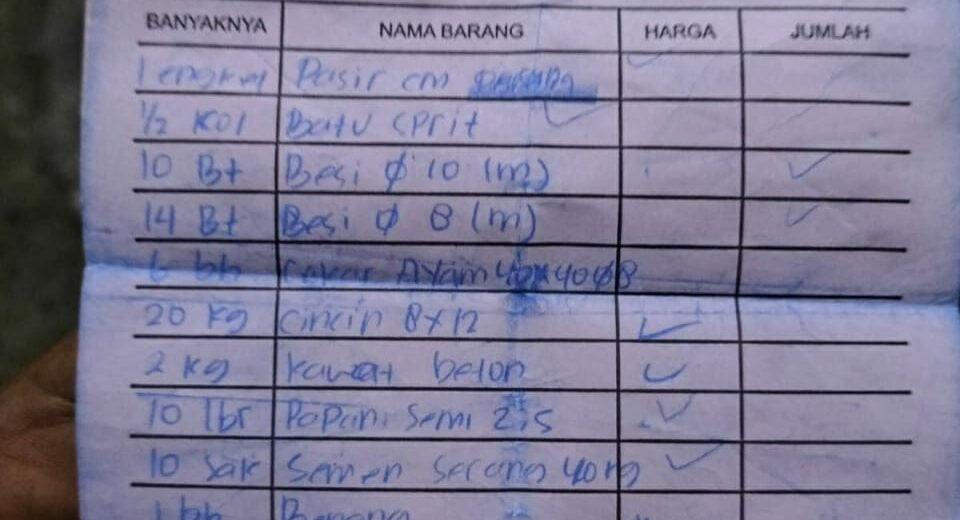 BANYAKNYA NAMA BARANG HARGA JUMLAH
1 engkel Pasir cm
1/2 Kol Batu Cprit
10 Bt Besi ∅ 10 (m)
14 Bt Besi ∅ 8 (m)
6 bh Cakar Ayam 40x40∅8
20 kg Cincin 8x12
2 kg Kawat beton
10 lbr Papan Semi 2,5
10 Sak Semen Serang 40kg
1 bh Benang